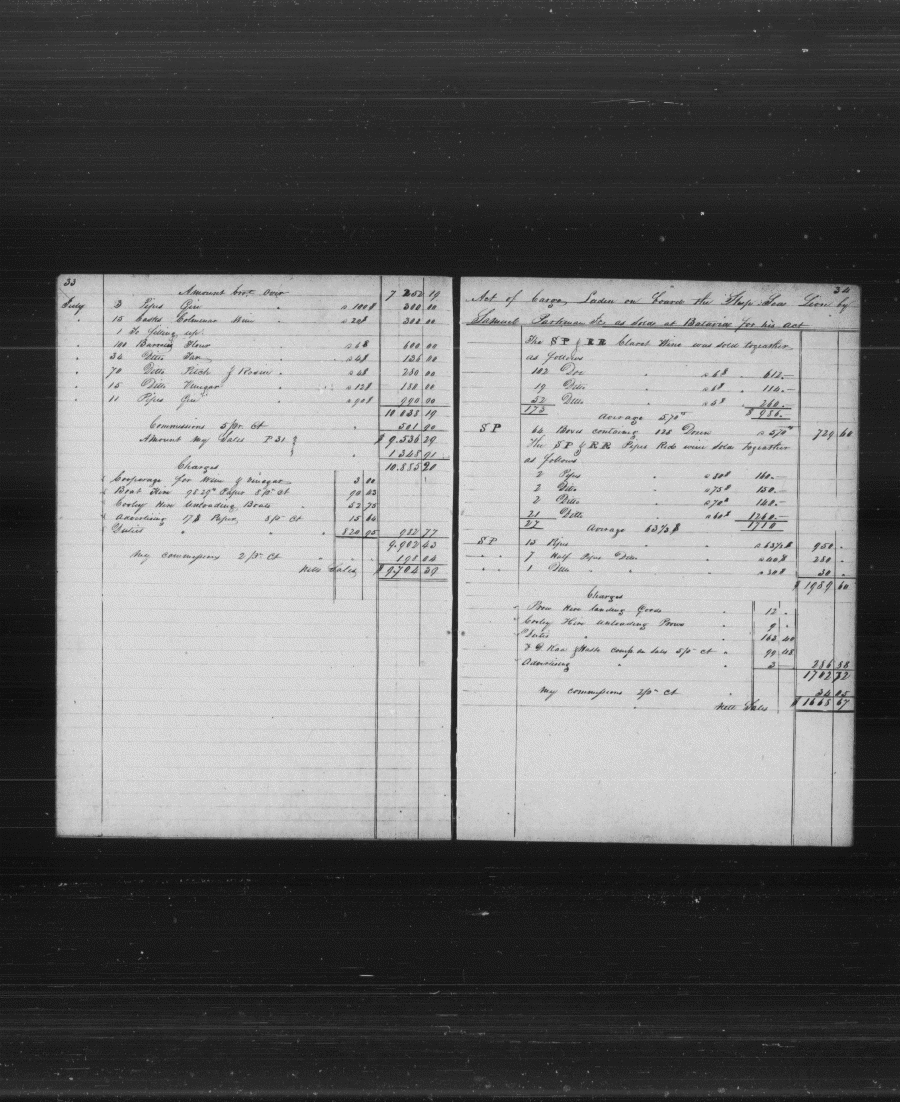 33
Amount Brot Over 7 252 19
July 3 Pipes Gin a 100$ 300 00
" 15 Casks Colmenar Wine a 20$ 300 00
1 To filling up
" 100 Barrels Flour a 6$ 600 00
" 34 Ditto Tar a 4$ 136 00
" 70 Ditto Pitch & Rosin a 4$ 280 00
" 15 Ditto Vinegar a 12$ 180 00
" 11 Pipes Gin a 90$ 990 00
10 038 19
Commissions 5 pr Ct 501 90
Amount my Sales P 31 $ 9.536 29
1 348 91
10.885 20
Charges
Cooperage for Wine & Vinegar 3 00
Boat Hire 5 pr Ct 90 63
Cooley Hire Unloading Boats 52 75
Advertising 15 64
Duties " " 820 95 982 77
9.902 43
My commissions 2 pr Ct 198 04
Nett Sales $ 9.704 39
34
Act of Cargo Laden on board the Ship Sea Lion by
Samuel as Sold at Batavia for his act
The SP & RR Claret Wine was sold together
as follows
102 Doz a 6$ 612.—
19 Ditto a 6$ 114.—
52 Ditto a 5$ 260.—
173 Average 570 $ 986.—
SP 64 Boxes containing 128 Dozen a 570 729 60
The SP & RR Pipes Red were sold together
as follows
2 Pipes a 80$ 160.—
2 Ditto a 75$ 150.—
2 Ditto a 70$ 140.—
21 Ditto a 60$ 1260.—
27 Average 63⅓$ 1710
SP 15 Pipes a 63⅓$ 950 "
" " 7 Half Pipes Ditto a 40$ 280 "
" " 1 Ditto " " a 30$ 30 "
$ 1989 60
Charges
Prow Hire landing Goods " 12 "
Cooley Hire Unloading Prows " 9 "
Duties " " 163 40
Comp on Sales 5 pr Ct " 99 48
Advertising " " 2 " 286 88
1702 32
My commissions 2 pr Ct " 34 05
Nett Sales $ 1668 67